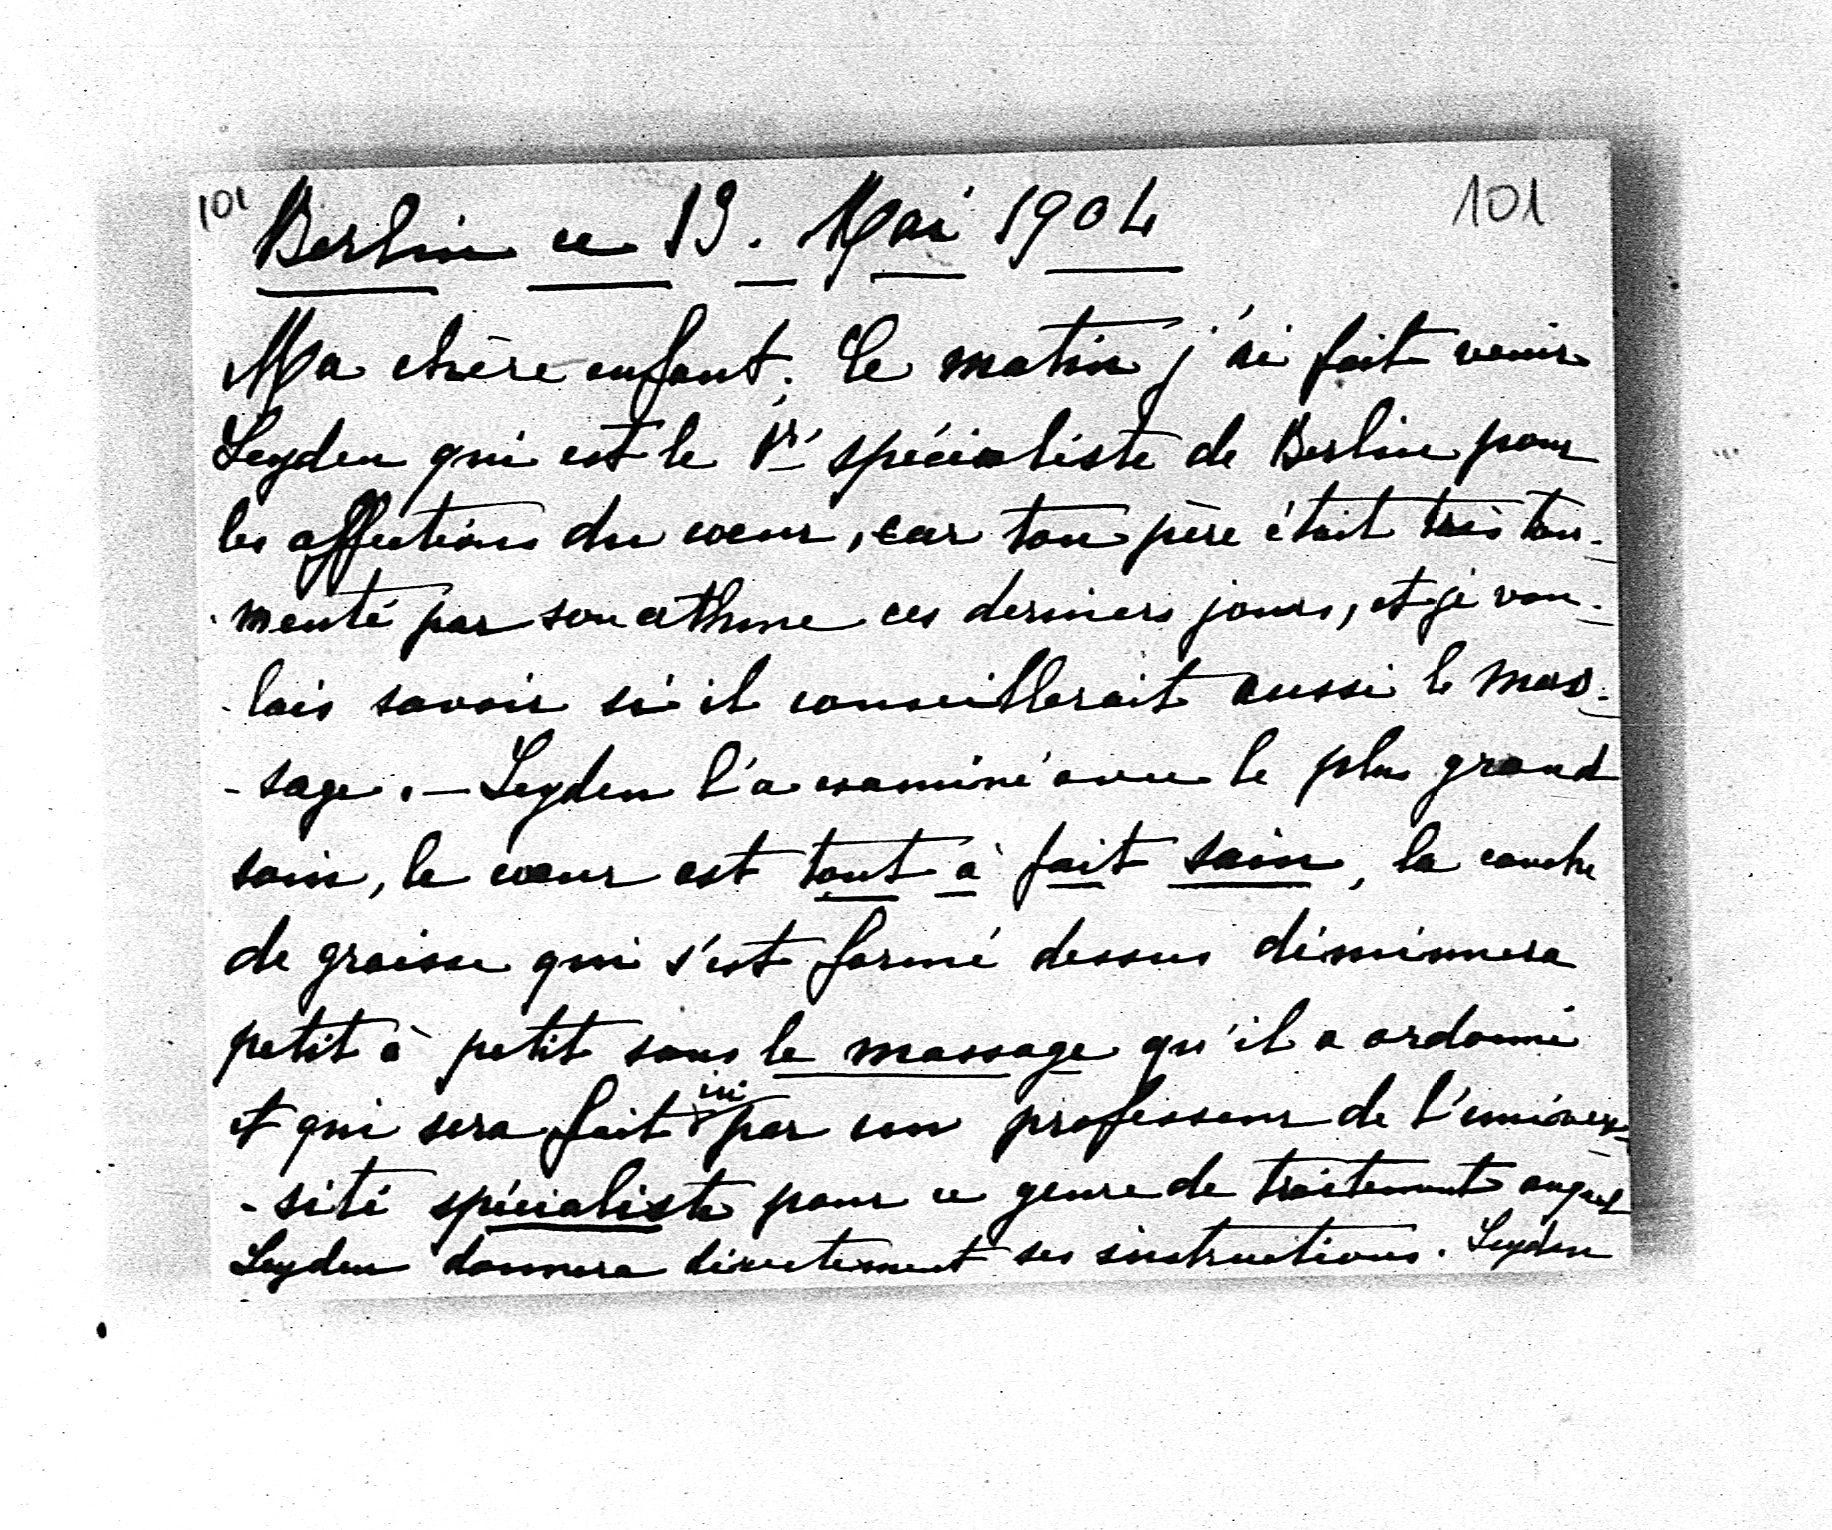 101 Berlin ce 19. Mai 1904 101
Ma chère enfant. Ce matin j'ai fait venir
Leyden qui est le 1r. spécialiste de Berlin pour
les affections du coeur, car ton père était très tour-
-menté par son asthme ces derniers jours, et je vou-
-lais savoir si il conseillerait aussi le mas-
-sage. — Leyden l'a examiné avec le plus grand
soin, le coeur est tout à fait sain, la couche
de graisse qui s'est formé dessus diminuera
petit à petit sous le massage qu'il a ordonné
et qui sera fait ici par un professeur de l'univer-
-sité spécialiste pour ce genre de traitement auquel
Leyden donnera directement ses instructions. Leyden